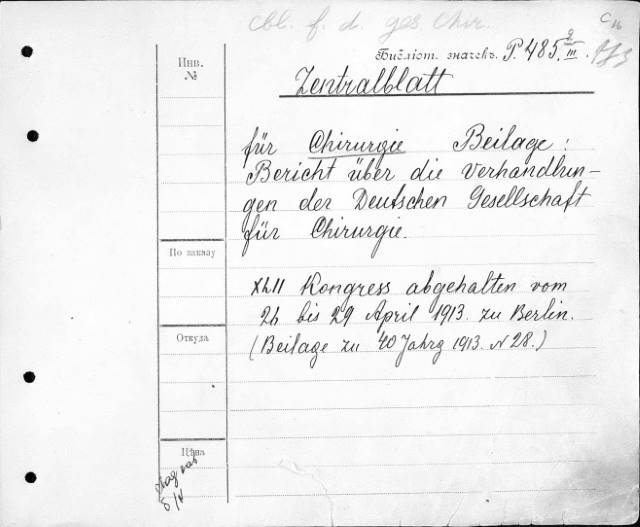 cbl. f. d. ges. Chir.
Библіот. значекъ. P. 485 2/III.
Инв.
№
Zentralblatt
für Chirurgie Beilage:
Bericht über die Verhandlun-
gen der Deutschen Gesellschaft
für Chirurgie.
По заказу
XLII Kongress abgehalten vom
26 bis 29 April 1913. zu Berlin.
Откуда
(Beilage zu 40 Jahrg 1913. N 28.)
Цѣна